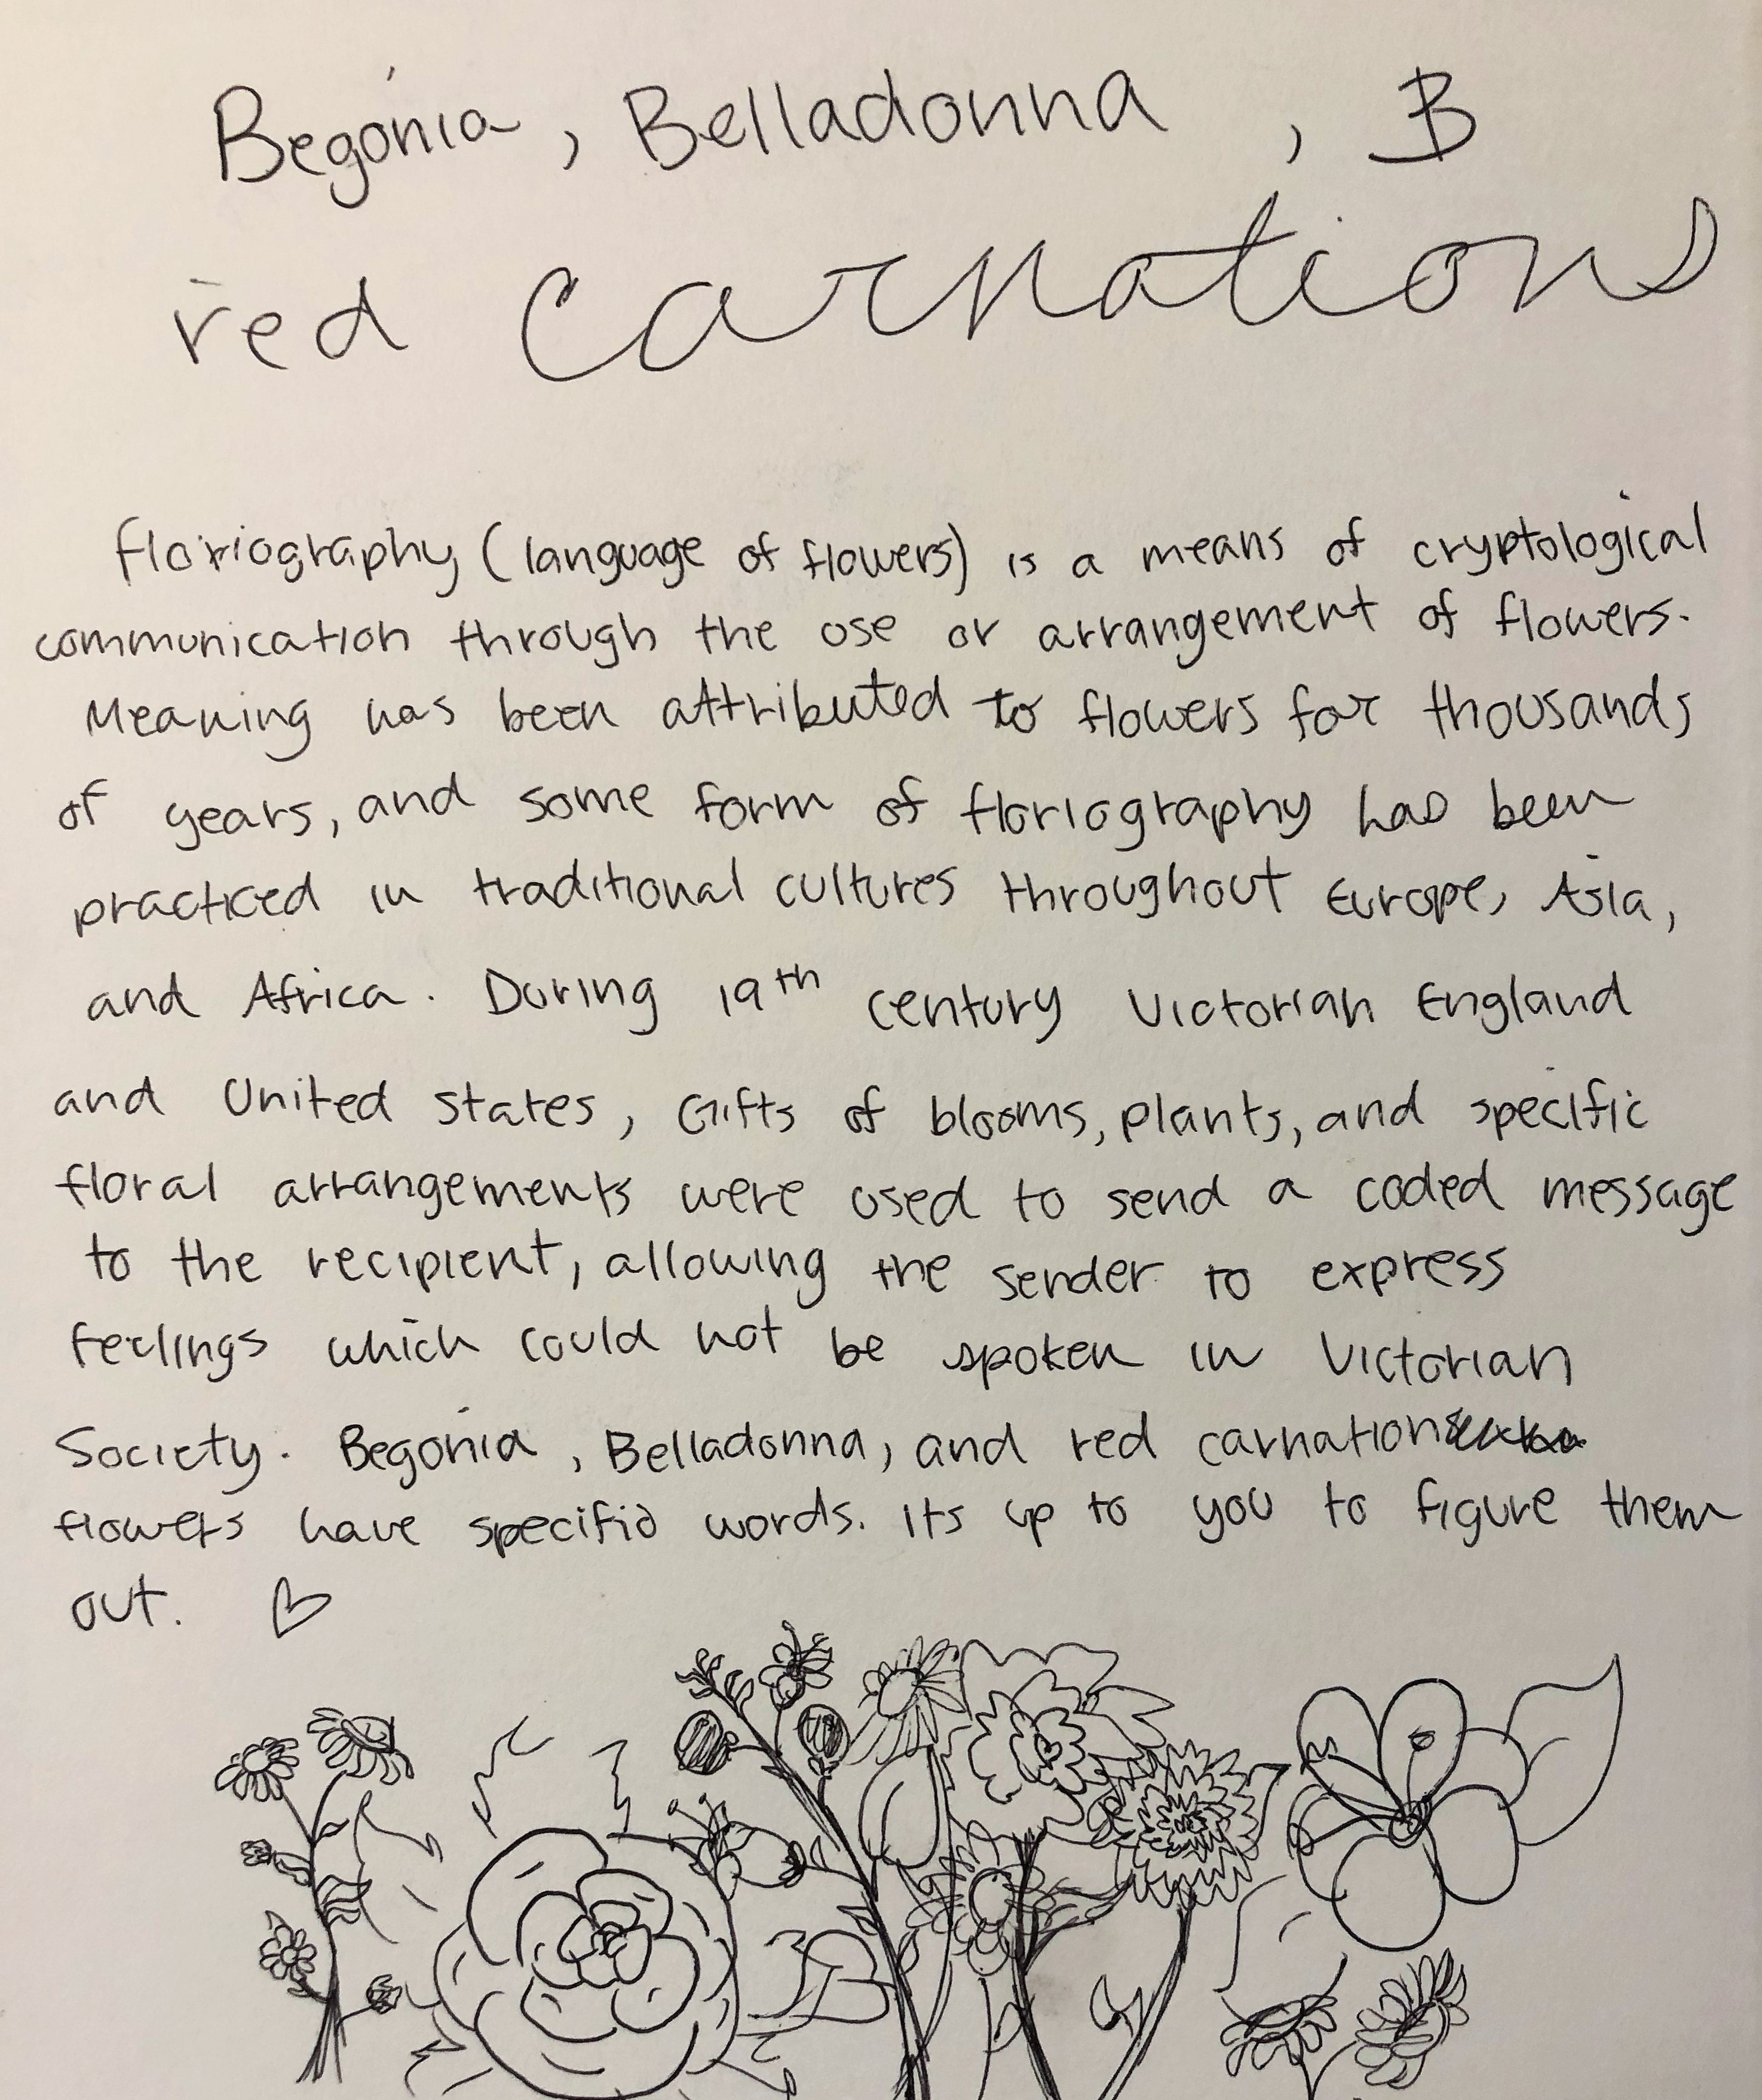 Begonia, Belladonna, &
red Carnations
floriography (language of flowers) is a means of cryptological
communication through the use or arrangement of flowers.
Meaning has been attributed to flowers for thousands
of years, and some form of floriography has been
practiced in traditional cultures throughout Europe, Asia,
and Africa. During 19th century Victorian England
and United States, Gifts of blooms, plants, and specific
floral arrangements were used to send a coded message
to the recipient, allowing the sender to express
feelings which could not be spoken in Victorian
Society. Begonia, Belladonna, and red carnation
flowers have specific words. Its up to you to figure them
out. ♡